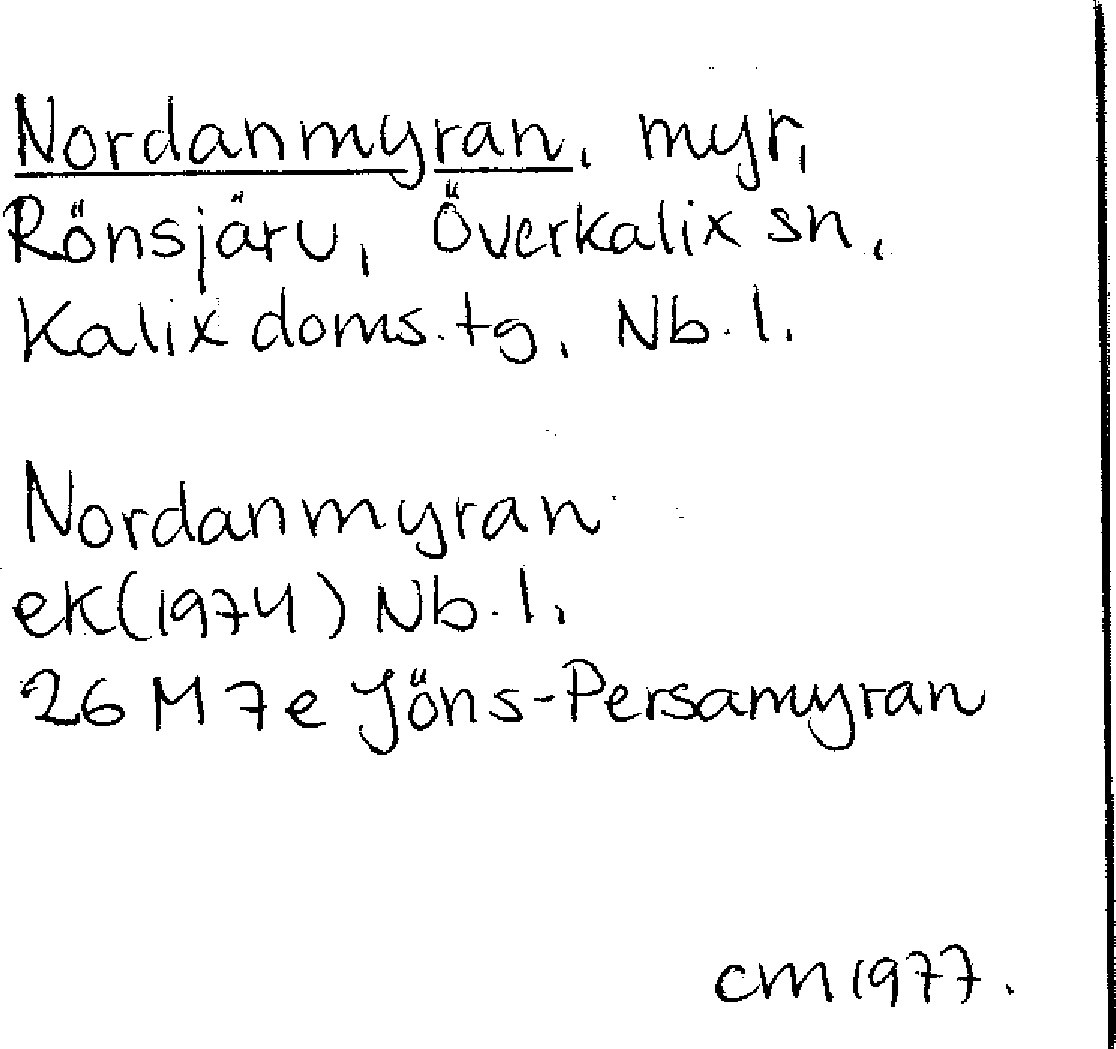 Nordanmyran, myr,
Rönsjärv, Överkalix sn,
Kalix doms.tg, Nb.l.
Nordanmyran
ek(1974) Nb.l.
26 M 7e Jöns-Persamyran
cm 1977.